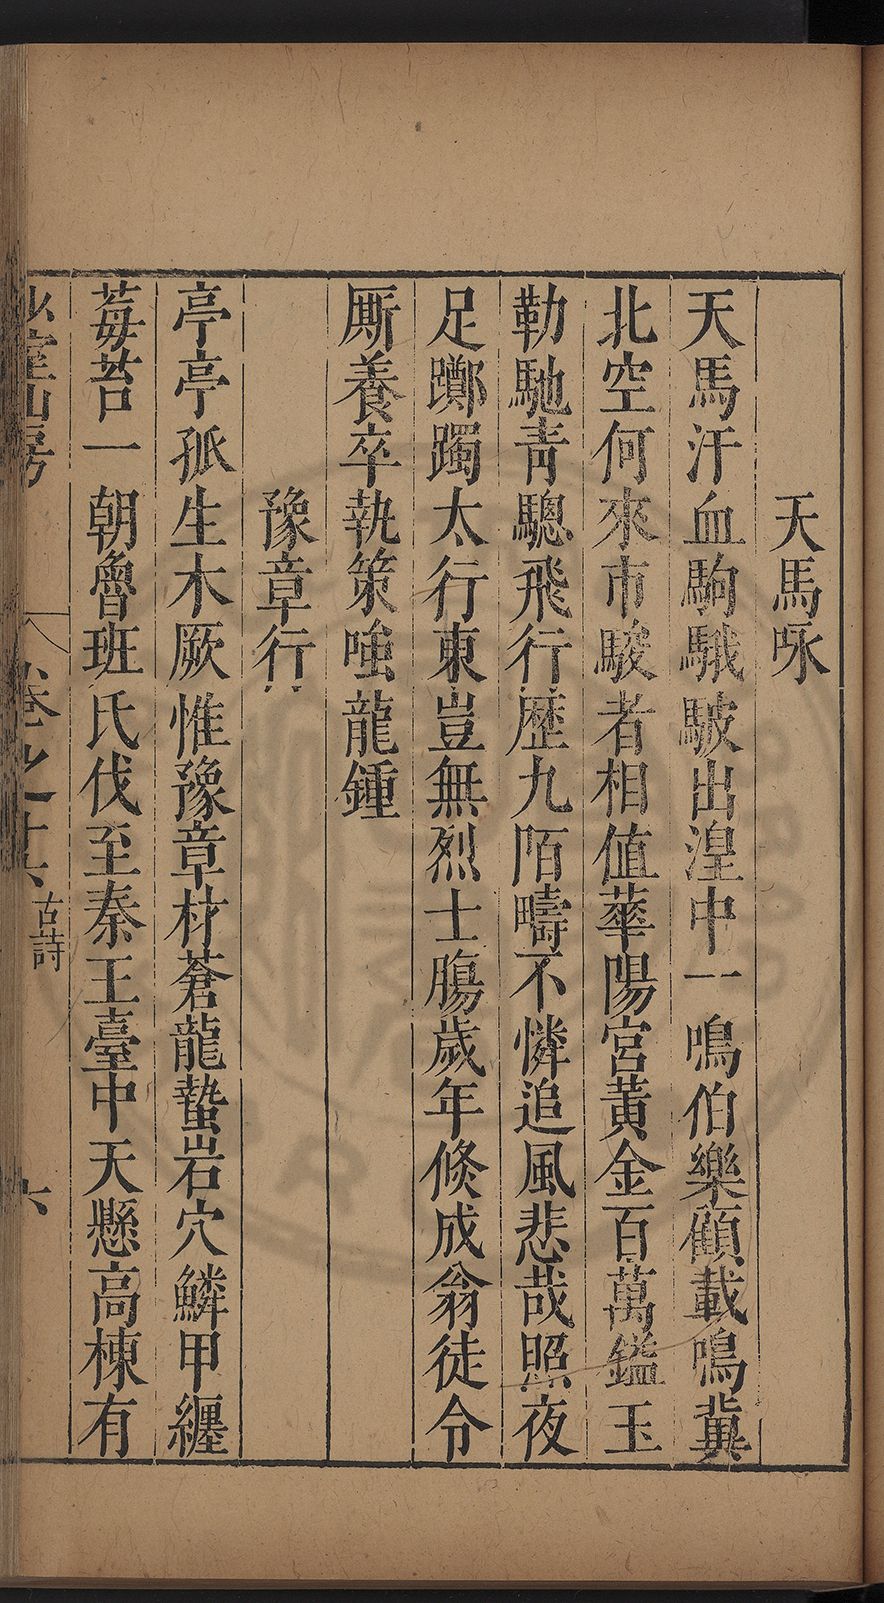 天馬咏
天馬汗血駒騀駊出湟中一鳴伯樂顧載鳴冀
北空何來市駿者相値華陽宮黃金百萬鎰玉
勒馳青驄飛行歷九陌疇不憐追風悲哉照夜
足躑躅太行東豈無烈士膓歲年倐成翁徒令
厮養卒執策嗤龍鍾
豫章行
亭亭孤生木厥惟豫章材蒼龍蟄岩穴鱗甲纏
莓苔一朝魯班氏伐至秦王臺中天懸高棟有
山房
卷之十六 古詩
六